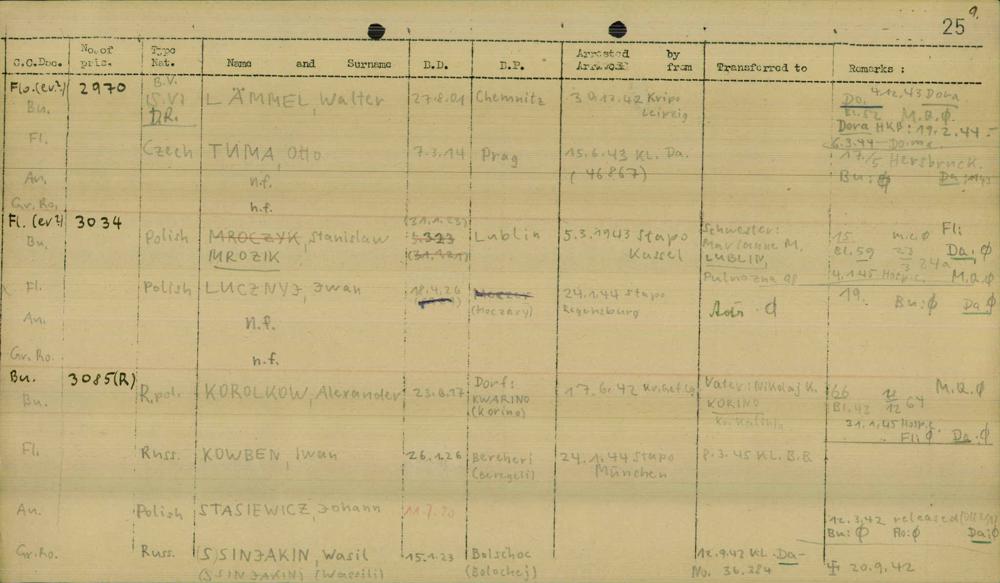 9.
25
C.C.Doc. No. of pris. Type Nat. Name and Surname D.D. D.P. Arrested by from Transferred to Remarks :
Flo. (ev?) 2970 B.V.
Bu. D.R. LÄMMEL, Walter 27.8.01 Chemnitz 30.12.42 Kripo Leipzig Do. 4.12.43 Dora
Bl.52 M.Q.Ø
Dora HKB: 19.2.44.-
Fl. Czech TUMA, Otto 7.3.14 Prag 15.6.43 KL. Da. 6.3.44
(46867) 17./5 Hersbruck.
An. n.f. Bu: Ø Da
Gr.Ro. n.f.
Fl. (ev?) 3034 (31.1.23)
Bu. Polish MROCZYK, Stanislaw 323 Lublin 5.3.1943 Stapo Kassel Schwester: 15. m.c.Ø Fl:
MROZIK Marianne M. Bl.59 23/3 24a Da. Ø
LUBLIN, 4.1.45 Hospit. M.Q.Ø
Fl. Polish LUCZNYJ, Iwan 18.4.26 24.1.44 Stapo Regensburg 19. Bu: Ø Da Ø
(Moczary) Ø
An. n.f.
Gr.Ro. n.f.
Bu. 3085(R)
Bu. R.pol. KOROLKOW, Alexander 23.8.17 Dorf: KWARINO (Korino) 17.6.42 Vater: Nikolaj K. 66 M.Q.Ø
KORINO Bl.43 12 64
31.1.45 Hospit.
Fl: Ø Da. Ø
Fl. Russ. KOWBEN, Iwan 26.1.26 Bercheri 24.1.44 Stapo München 8.3.45 KL. B.B.
(Beregeli)
An. Polish STASIEWICZ, Johann 11.7.20 12.3.42 released
Bu: Ø Ro: Ø Da: Ø
Gr.Ro. Russ. (S)SINJAKIN, Wasil 15.1.23 Bolschoc 12.9.42 KL. Da-
(S)SINJAKIN) (Wassili) (Bolochej) No. 36.284 20.9.42